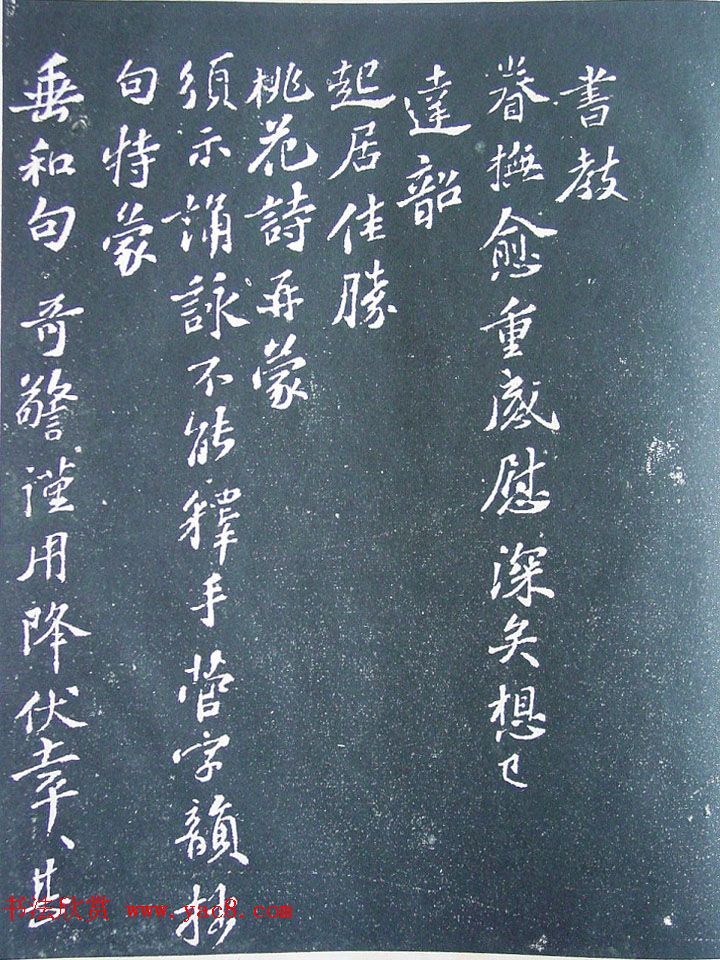 書教
眷撫愈重感慰深矣想已
達韶
起居佳勝
桃花詩再蒙
須示誦詠不能釋手菅字韻拙
句特蒙
垂和句奇警謹用降伏幸〻甚
书法欣赏 www.yac8.com